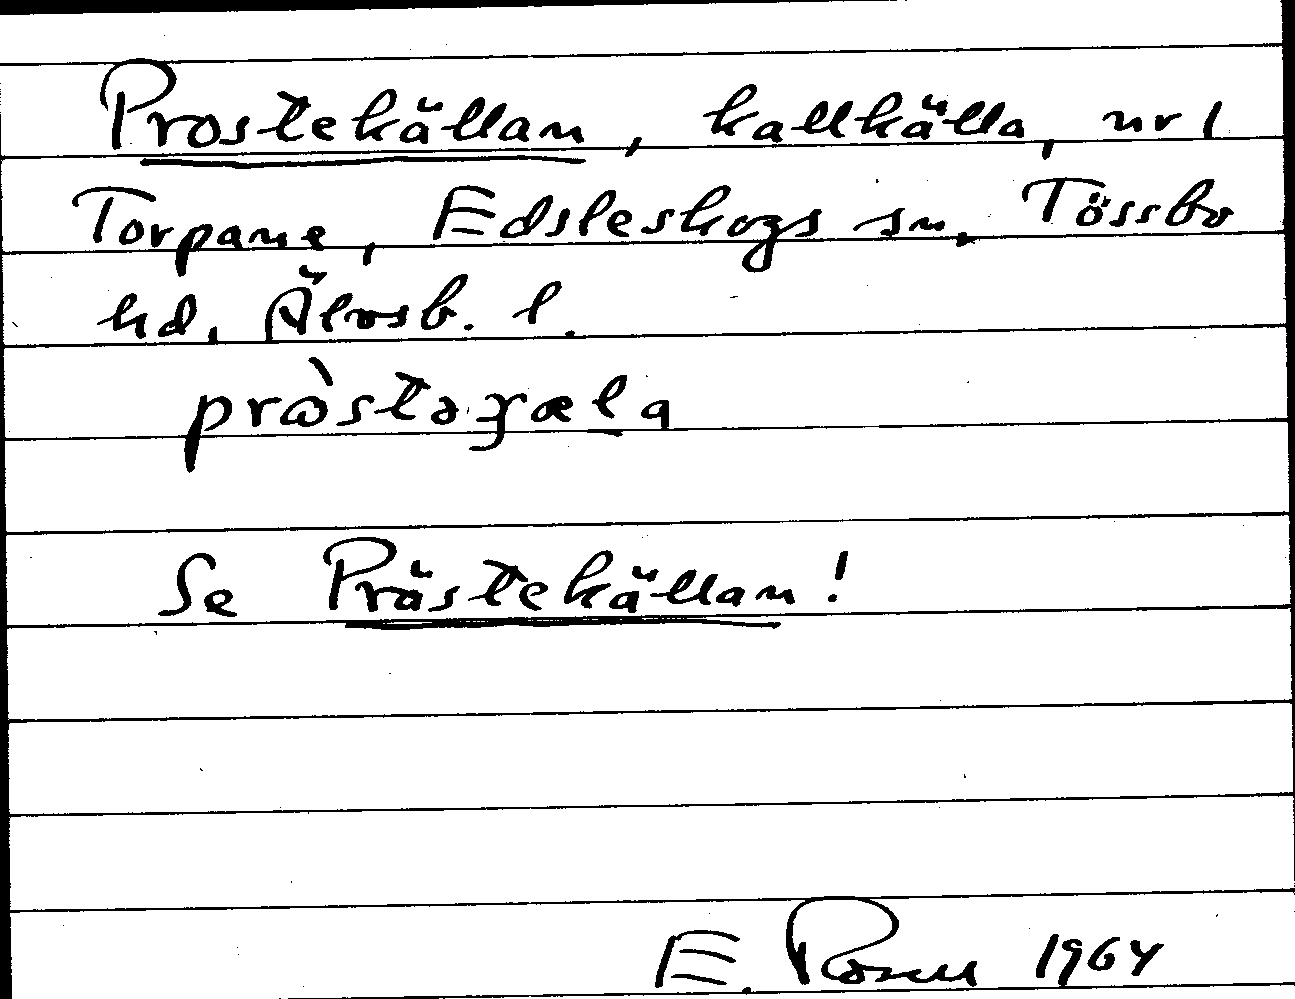 Prostekällan, kallkälla, nr 1
Torpane, Edsleskogs sn, Tössbo
hd, Älvsb. l.
Se Prästekällan!
E. Rosen 1964